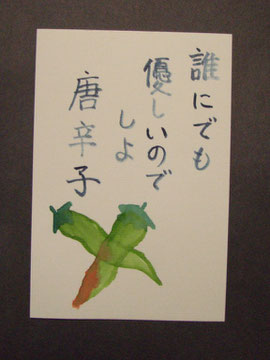 誰にでも
優しいので
しよ
唐辛子